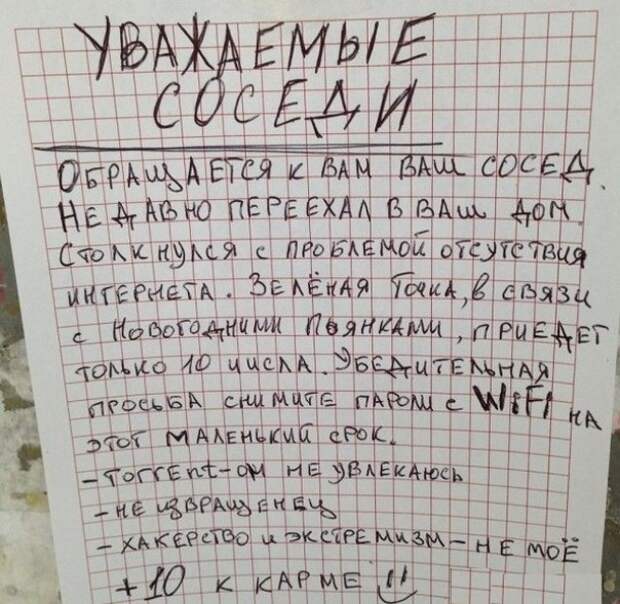 УВАЖАЕМЫЕ
СОСЕДИ
ОБРАЩАЕТСЯ К ВАМ ВАШ СОСЕД.
НЕДАВНО ПЕРЕЕХАЛ В ВАШ ДОМ.
СТОЛКНУЛСЯ С ПРОБЛЕМОЙ ОТСУТСТВИЯ
ИНТЕРНЕТА. ЗЕЛЁНАЯ ТОЧКА, В СВЯЗИ
С НОВОГОДНИМИ ПЬЯНКАМИ, ПРИЕДЕТ
ТОЛЬКО 10 ЧИСЛА. УБЕДИТЕЛЬНАЯ
ПРОСЬБА СНИМИТЕ ПАРОЛИ С WiFi НА
ЭТОТ МАЛЕНЬКИЙ СРОК.
- ТОГГЕnt-ОМ НЕ УВЛЕКАЮСЬ
- НЕ ИЗВРАЩЕНЕЦ
- ХАКЕРСТВО И ЭКСТРЕМИЗМ - НЕ МОЁ
+10 К КАРМЕ